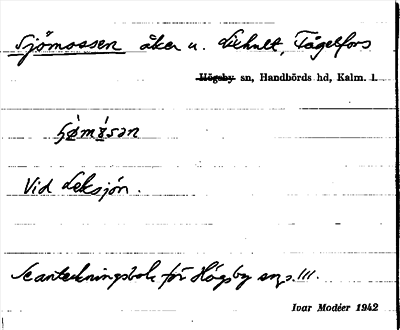 Sjömossen åker u. Liehult, Fågelfors
Högsby sn, Handbörds hd, Kalm. l.
Vid Leksjön.
Se anteckningsbok för Högsby sn s. III.
Ivar Modéer 1942